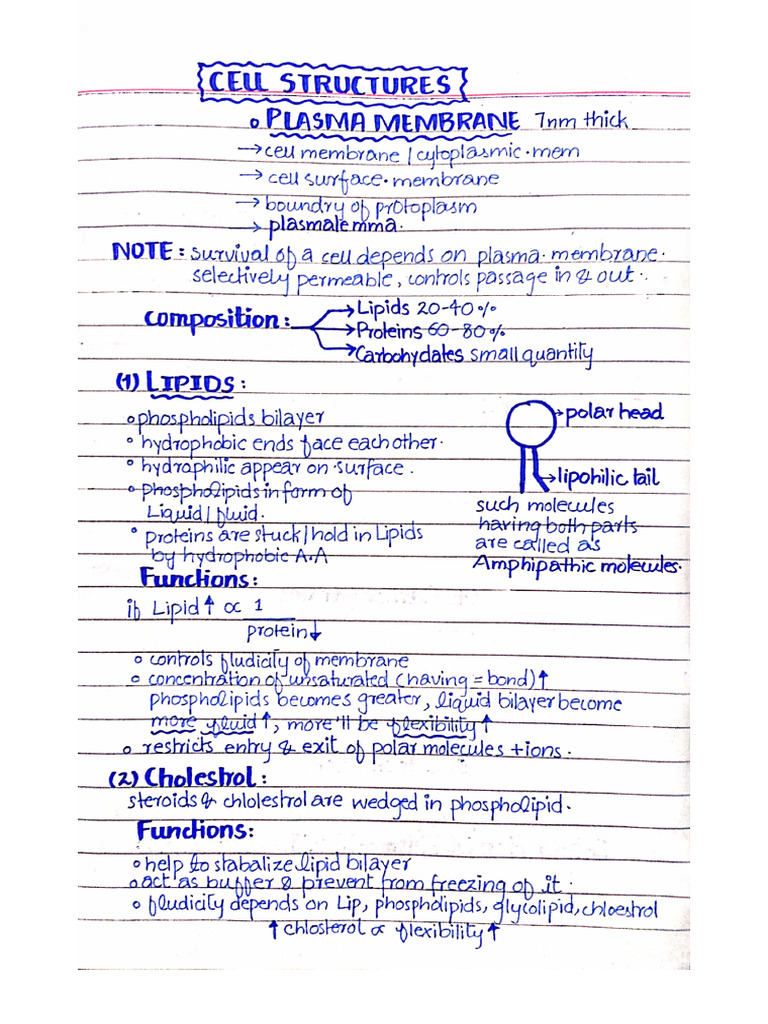 {CELL STRUCTURES}
o PLASMA MEMBRANE 7nm thick
→ cell membrane / cytoplasmic.mem
→ cell surface.membrane
→ boundry of protoplasm
→ plasmalemma.
NOTE: Survival of a cell depends on plasma.membrane.
selectively permeable, controls passage in & out.
composition: → Lipids 20-40%
→ Proteins 60-80%
→ Carbohydates small quantity
(1) LIPIDS:
o phospholipids bilayer
→ polar head
o hydrophobic ends face each other.
o hydrophilic appear on surface.
→ lipohilic tail
o phospholipids in form of
Liquid / fluid.
such molecules
having both parts
are called as
Amphipathic molecules.
o proteins are stuck / hold in Lipids
by hydrophobic A.A
Functions:
if Lipid ↑ ∝ 1
protein ↓
o controls fludicity of membrane
o concentration of unsaturated (having = bond) ↑
phospholipids becomes greater, liquid bilayer become
more fluid ↑, more'll be flexibility ↑
o restricts entry & exit of polar molecules + ions.
(2) Cholestrol:
steroids & chlolestrol are wedged in phospholipid.
Functions:
o help to stabalize lipid bilayer
o act as buffer & prevent from freezing of it.
o fludicity depends on Lip, phospholipids, glycolipid, chloestrol
↑ chlosterol ∝ flexibility ↑